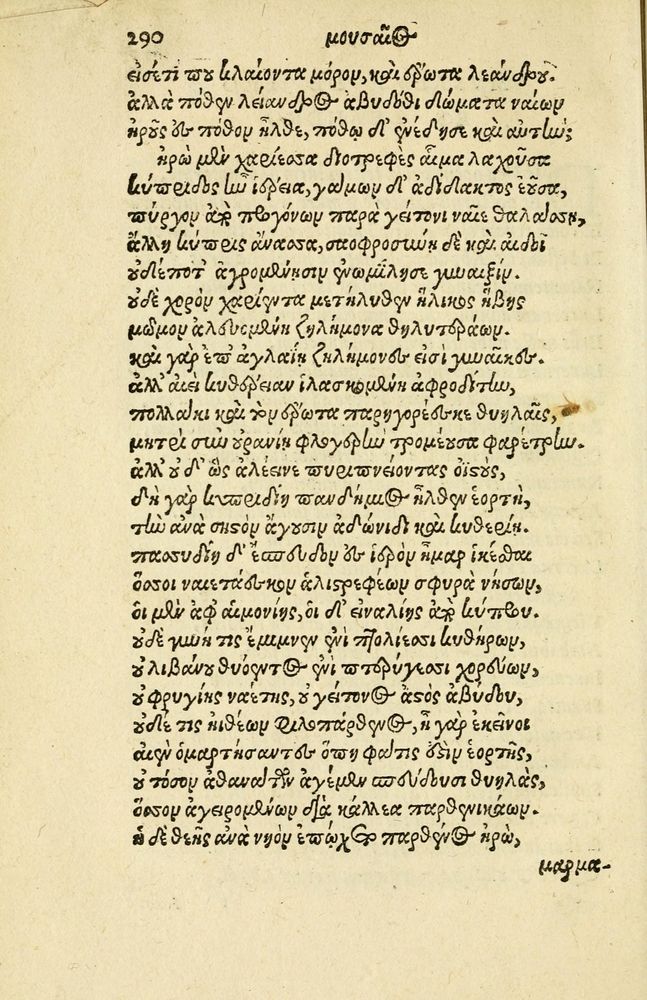 290 μουσαῖος
εἰσέτι που κλαίοντα μόρον, καὶ ἔρωτα λεάνδρου.
ἀλλὰ πόθεν λείανδρος ἀβυδόθι δώματα ναίων
ἡροῦς ἐς πόθον ἦλθε, πόθῳ δ' ἐνέδησε καὶ αὐτήν;
ἡρὼ μὲν χαρίεσσα διοτρεφὲς αἷμα λαχοῦσα
κύπριδος ἦν ἱέρεια, γάμων δ' ἀδίδακτος ἐοῦσα,
πύργον ἀπὸ προγόνων παρὰ γείτονι ναῖε θαλάσσῃ,
ἄλλη κύπρις ἄνασσα, σαοφροσύνῃ δὲ καὶ αἰδοῖ
οὐδέποτ' ἀγρομένῃσιν ἐνωμίλησε γυναιξίν.
οὐδὲ χορὸν χαρίεντα μετήλυθεν ἥλικος ἥβης
μῶμον ἀλευομένη ζηλήμονα θηλυτεράων.
καὶ γὰρ ἐπ' ἀγλαΐῃ ζηλήμονές εἰσι γυναῖκες.
ἀλλ' αἰεὶ κυθέρειαν ἱλασκομένη ἀφροδίτην,
πολλάκι καὶ τὸν ἔρωτα παρηγορέεσκε θυηλαῖς,
μητρὶ σὺν οὐρανίῃ φλογερὴν τρομέουσα φαρέτρην.
ἀλλ' οὐδ' ὣς ἀλέεινε πυριπνείοντας ὀϊστούς,
δὴ γὰρ κυπριδίη πανδήμιος ἦλθεν ἑορτὴ,
τὴν ἀνὰ σηστὸν ἄγουσιν ἀδώνιδι καὶ κυθερείῃ.
πασσυδίῃ δ' ἔσπευδον ἐς ἱερὸν ἦμαρ ἱκέσθαι
ὅσσοι ναιετάεσκον ἁλιστρεφέων σφυρὰ νήσων,
οἱ μὲν ἀφ' αἱμονίης, οἱ δ' εἰναλίης ἀπὸ κύπρου.
οὐδὲ γυνή τις ἔμιμνεν ἐνὶ πτολίεσσι κυθήρων,
οὐ λιβάνου θυόεντος ἐνὶ πτερύγεσσι χορεύων,
οὐ φρυγίης ναέτης, οὐ γείτονος ἀστὸς ἀβύδου,
οὐδέ τις ἠιθέων φιλοπάρθενος, ἦ γὰρ ἐκεῖνοι
αἰὲν ὁμαρτήσαντες ὅπῃ φάτις ἐστὶν ἑορτῆς,
οὐ τόσον ἀθανάτων ἀγέμεν σπεύδουσι θυηλὰς,
ὅσσον ἀγειρομένων διὰ κάλλεα παρθενικάων.
ἡ δὲ θεῆς ἀνὰ νηὸν ἐπῴχετο παρθένος ἡρὼ,
μαρμα-